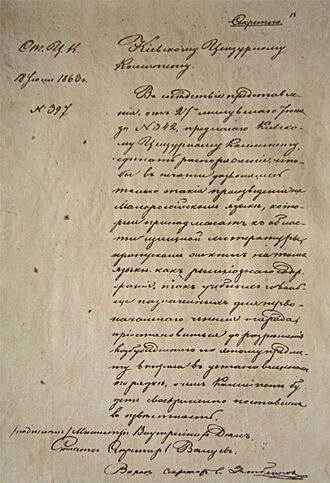 Секретно
От М. В. Д.
18 Июля 1863 г.
№ 394
Кіевскому Цензурному
Комитету.
Въ слѣдствіе представле-
нія, отъ 27го минувшаго Іюня
за № 342, предлагаю Кіевс-
кому Цензурному Комитету,
сдѣлать распоряженіе, что-
бы къ печати дозволялись
только такія произведенія на
Малороссійскомъ языкѣ, кото-
рыя принадлежатъ къ облас-
ти изящной литературы;
пропускомъ же книгъ на томъ
языкѣ какъ религіознаго содер-
жанія, такъ учебныхъ и вооб-
ще назначаемыхъ для перво-
начальнаго чтенія народа
пріостановиться до разрѣшенія
возбужденнаго по этому предме-
ту вопроса въ установленномъ
порядкѣ, о чемъ Комитетъ бу-
детъ своевременно поставленъ
въ извѣстность.
(подписалъ) Министръ Внутреннихъ Дѣлъ,
Статсъ Секретарь Валуевъ.
Секретарь